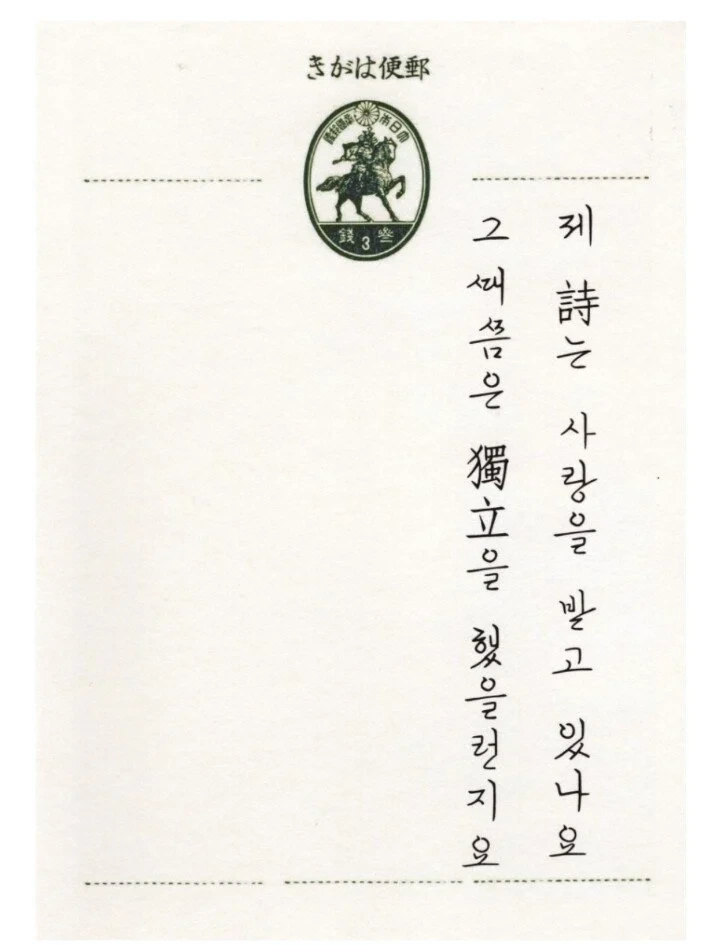 郵便はがき
大日本帝國郵便
叁 3 錢
제 詩는 사랑을 받고 있나요
그 때쯤은 獨立을 했을런지요